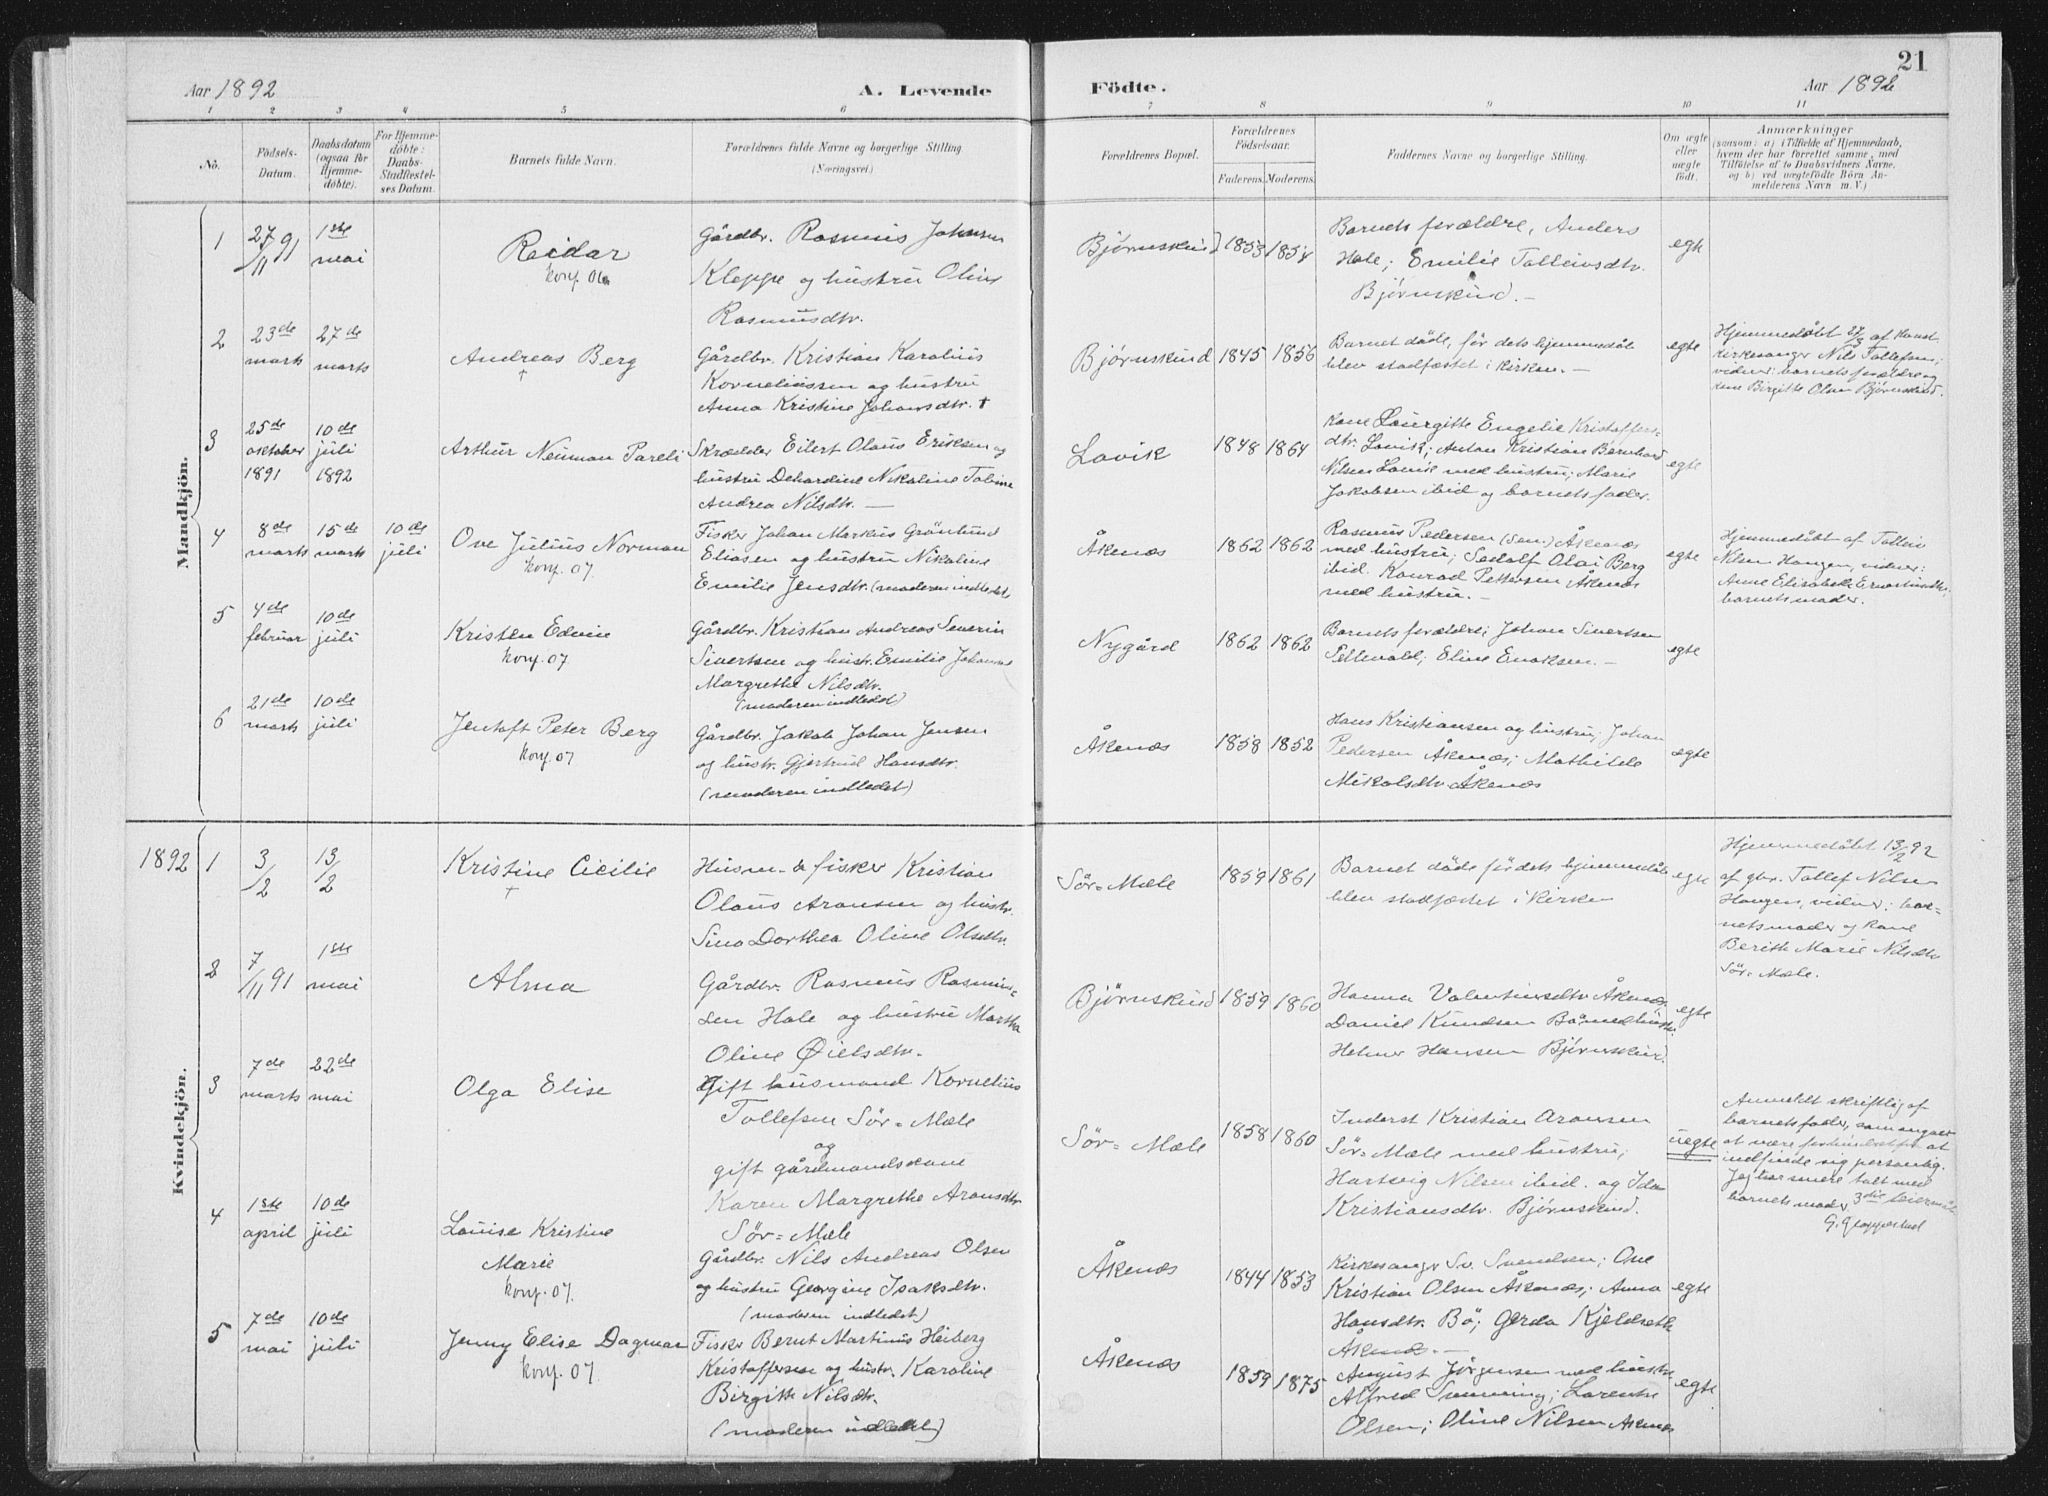 21
Aar 1892
A. Levende
Födte.
Aar 1892
1 2 3 4 5 6 7 8 9 10 11
No.
Födsels-Datum.
Daabsdatum (ogsaa for Hjemme-döbte).
For Hjemme-döbte: Daabs-Stadfæstel-ses Datum.
Barnets fulde Navn.
Forældrenes fulde Navne og borgerlige Stilling. (Næringsvei.)
Forældrenes Bopæl.
Forældrenes Födselsaar.
Faderens. Moderens.
Faddernes Navne og borgerlige Stilling.
Om ægte eller uægte födt.
Anmærkninger
(saasom: a) i Tilfælde af Hjemmedaab,
hvem der har forrettet samme, med
Tilföielse af to Daabsvidners Navne,
og b) ved uægtefödte Börn An-
melderens Navn m. V.)
Mandkjön.
1
27/11 91
1ste mai
Reidar
konf. 06
Gårdbr. Rasmus Johnsen
Kleppe og hustru Oline
Rasmusdtr.
Bjørnskind
1853 1854
Barnets forældre, Anders
Hole; Emilie Tolleivsdtr.
Bjørnskind. —
egte
2
23de marts
27de marts
Andreas Berg
†
Gårdbr. Kristian Karolius
Korneliussen og hustru
Anna Kristine Johansdtr. †
Bjørnskind
1845 1856
Barnet døde, før dets hjemmedåb
blev stadfæstet i kirken. —
egte
Hjemmedøbt 27/3 af konst.
kirkesanger Nils Tollefsen;
vidner: barnets forældre og
Birgitte Olsen Bjørnskind.
3
25de oktober 1891
10de juli 1892
Arthur Neuman Pareli
Skrædder Eilert Olaus Eriksen og
hustru Dehardine Nikoline Tobine
Andrea Nilsdtr. —
Lovik
1848 1864
Kone Lourgitte Engelie Kristoffers-
dtr. Lovik; Anton Kristian Bernhard
Nilsen Lovik med hustru; Marie
Jakobsen ibid og barnets fader.
egte
4
8de marts
15de marts
10de juli
Ove Julius Norman
konf. 07.
Fisker Johan Markus Grönlund
Eliasen og hustru Nikoline
Emilie Jensdtr. (moderen indledet)
Åkenæs
1862 1862
Rasmus Pedersen (sen.) Åkenæs
med hustru; Sedolf Olai Berg
ibid. Konrad Pettersen Åkenæs
med hustru. —
egte
Hjemmedøbt af Tolleiv
Nilsen Haugen, vidner:
Anne Elisabeth Ernstinusdtr.,
barnets moder.
5
4de februar
10de juli
Kristen Edvin
konf. 07
Gårdbr. Kristian Andreas Severin
Sivertsen og hustr. Emilie Johanne
Margrethe Nilsdtr.
(moderen indledet)
Nygård
1862 1862
Barnets forældre; Johan Sivertsen
Eline Enoksen. —
egte
6
21de marts
10de juli
Jentoft Peter Berg
konf. 07
Gårdbr. Jakob Johan Jensen
og hustr. Gjertrud Hansdtr.
(moderen indledet)
Åkenæs
1858 1852
Hans Kristiansen og hustru; Johan
Pedersen Åkenæs; Mathilde
Mikalsdtr. Åkenæs
egte
Kvindekjön.
1892
1
3/2
13/2
Kristine Cicilie
†
Husm. & fisker Kristian
Olaus Aronsen og hustr.
Sina Dorthea Oline Olsdtr.
Sör-Mæle
1859 1861
Barnet døde før dets hjemmedåb
blev stadfæstet i kirken
egte
Hjemmedøbt 13/2 92
af gbr. Tollef Nilsen
Haugen, vidner: bar-
nets moder og kone
Berith Marie Nilsdtr.
Sör-Mæle.
2
7/11 91
1ste mai
Alma
Gårdbr. Rasmus Rasmus-
sen Hole og hustru Martha
Oline Øielsdtr.
Bjørnskind
1859 1860
Hanna Valentinsdtr. Åkenæs
Daniel Knudsen Bø med hustr.
Helmer Hansen Bjørnskind.
egte
3
7de marts
22de mai
Olga Elise
Gift husmand Kornelius
Tollefsen Sör-Mæle
og
gift gårdmandskone
Karen Margrethe Aronsdtr.
Sör-Mæle
Sör-Mæle
1858 1860
Inderst Kristian Aronsen
Sör-Mæle med hustru;
Hartvig Nilsen ibid. og Ida
Kristiansdtr. Bjørnskind.
uegte
Anmeldt skriftlig af
barnets fader, som angav
at være forhindret fra at
indfinde sig personlig.
Jeg har senere talt med
barnets moder. 3die leiermål
4
1ste april
10de juli
Louise Kristine
Marie
konf. 07.
Gårdbr. Nils Andreas Olsen
og hustru Georgine Isaksdtr.
(moderen indledet)
Åkenæs
1844 1853
Kirkesanger Sv. Svendsen; Ove
Kristian Olsen Åkenæs; Anna
Hansdtr. Bø; Gerda Kjeldseth
Åkenæs. —
egte
5
7de mai
10de juli
Jenny Elise Dagmar
konf. 07
Fisker Bernt Martinus Heiberg
Kristoffersen og hustr. Karoline
Birgitte Nilsdtr.
(moderen indledet)
Åkenæs
1859 1875
August Jörgensen med hustr.
Alfred Lorentse
Olsen; Oline Nilsen Åkenæs
egte